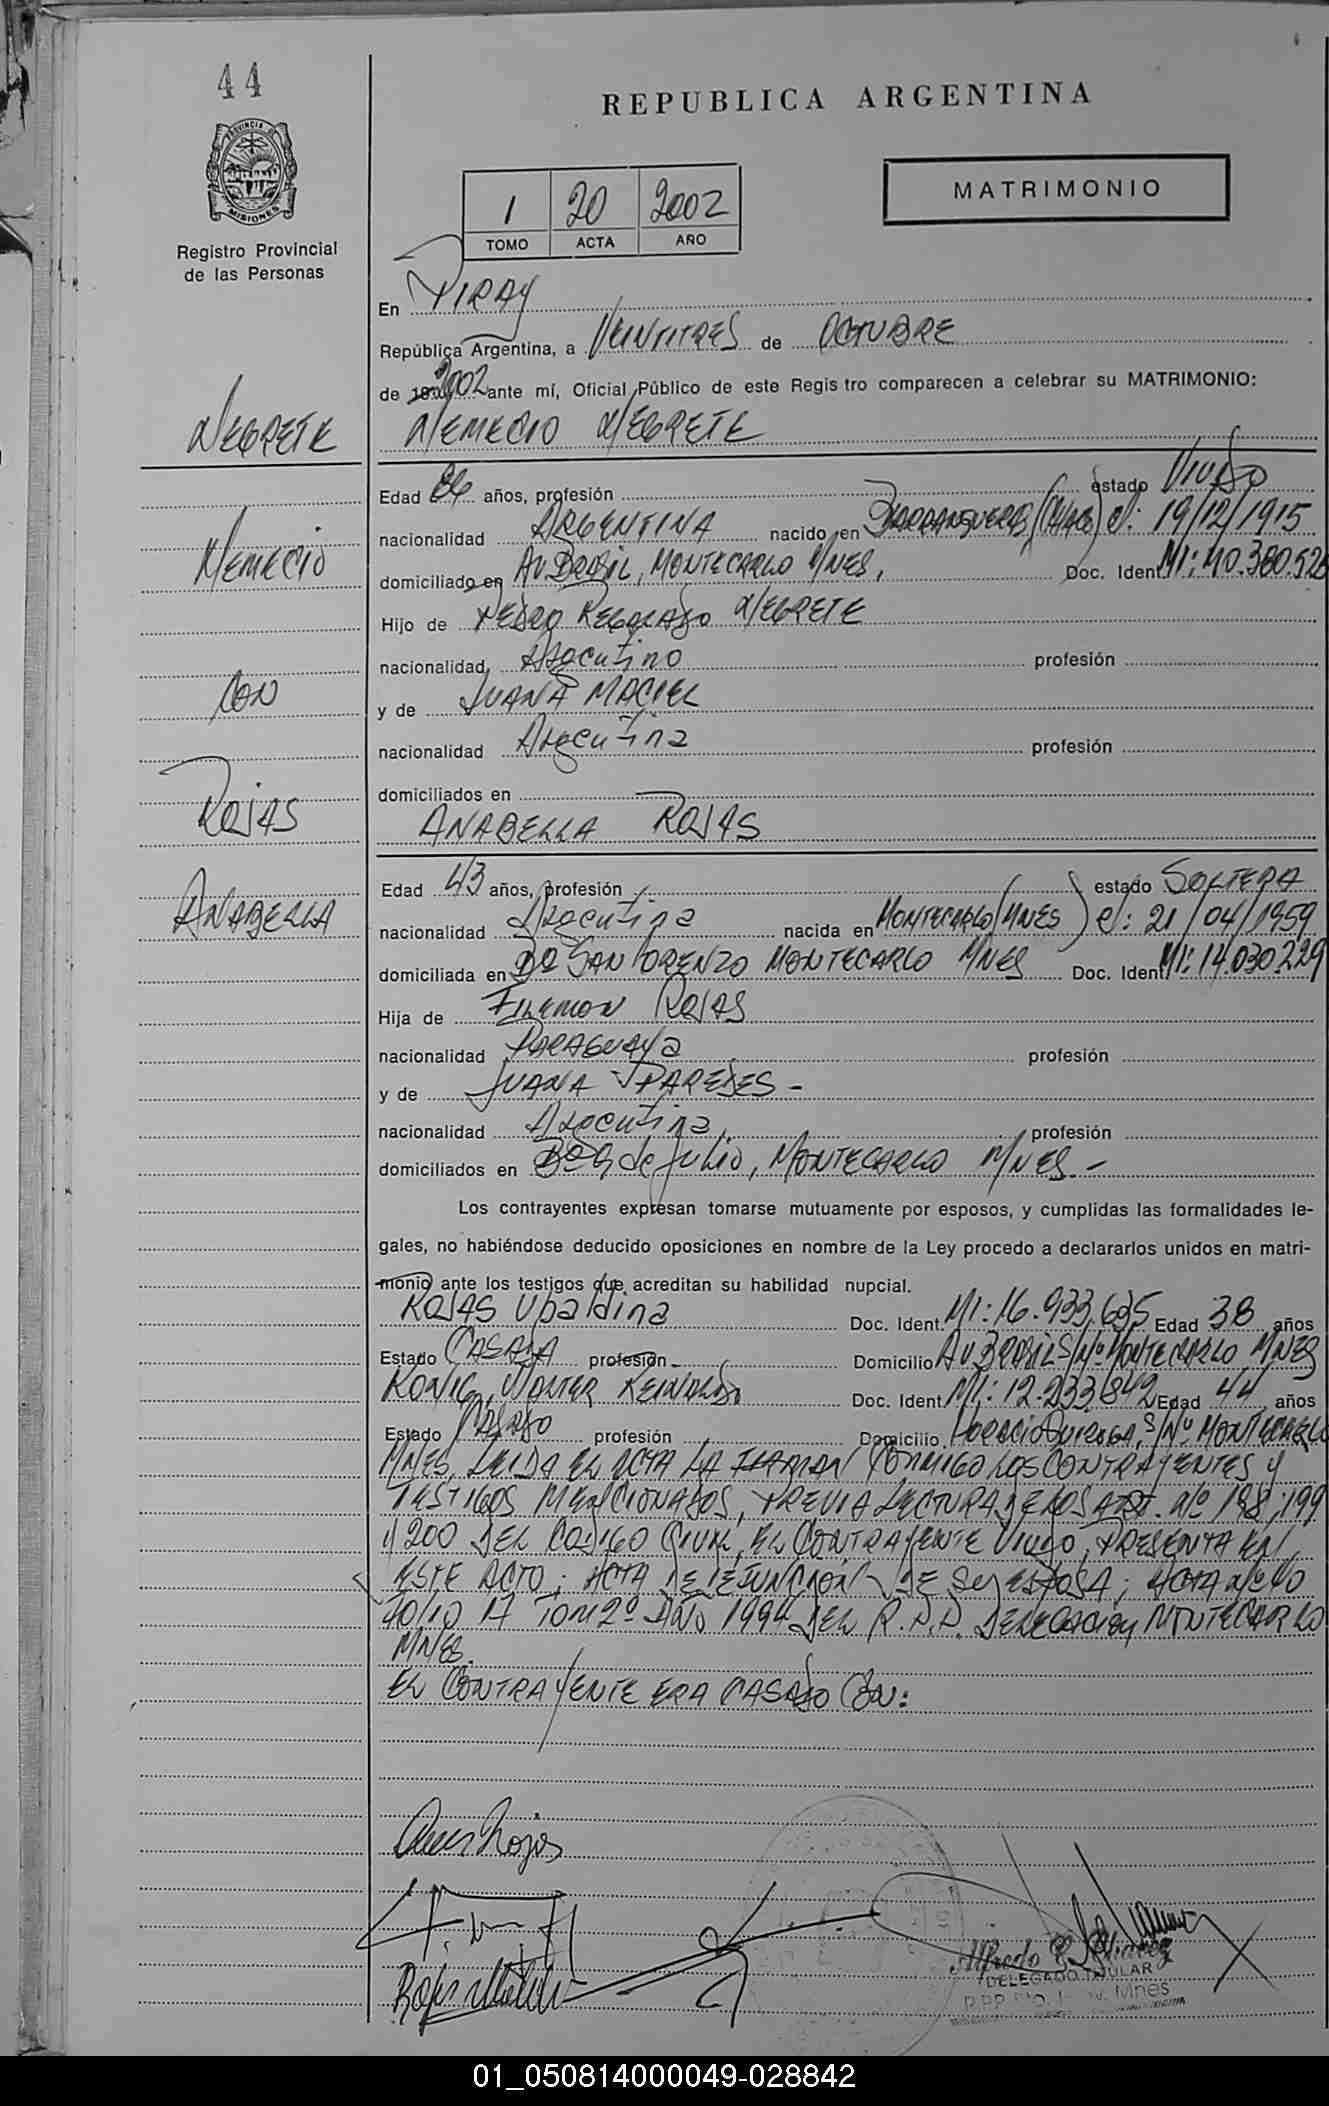 44
REPUBLICA ARGENTINA
PROVINCIA DE
MISIONES
Registro Provincial
de las Personas
1 20 2002
TOMO ACTA AÑO
MATRIMONIO
En PIRAY
República Argentina, a VEINTITRES de OCTUBRE
de 2002 ante mí, Oficial Público de este Regis tro comparecen a celebrar su MATRIMONIO:
NEGRETE
NEMECIO NEGRETE
Edad 86 años, profesión estado VIUDO
nacionalidad ARGENTINA nacido en BARRANQUERAS (CHACO) el: 19/12/1915
NEMECIO
domiciliado en AV. BRASIL, MONTECARLO MNES, Doc. Ident. MI: 40.380.526
Hijo de PEDRO REGALADO NEGRETE
nacionalidad Argentino profesión
CON
y de JUANA MACIEL
nacionalidad Argentina profesión
domiciliados en
ROJAS
ANABELLA ROJAS
Edad 43 años, profesión estado SOLTERA
ANABELLA
nacionalidad Argentina nacida en MONTECARLO (MNES) el: 21/04/1959
domiciliada en Bº SAN LORENZO MONTECARLO MNES Doc. Ident. MI: 14.030.229
Hija de FILEMON ROJAS
nacionalidad PARAGUAYA profesión
y de JUANA PAREDES -
nacionalidad Argentina profesión
domiciliados en Bº 9 de Julio, MONTECARLO MNES -
Los contrayentes expresan tomarse mutuamente por esposos, y cumplidas las formalidades le-
gales, no habiéndose deducido oposiciones en nombre de la Ley procedo a declararlos unidos en matri-
monio ante los testigos que acreditan su habilidad nupcial.
ROJAS Ubaldina Doc. Ident. MI: 16.933.635 Edad 38 años
Estado CASADA profesión Domicilio AV BRASIL S/Nº MONTECARLO MNES
KONIG, WALTER REINALDO Doc. Ident. MI: 12.233.842 Edad 44 años
Estado CASADO profesión Domicilio HORACIO QUIROGA, S/Nº MONTECARLO
MNES, LEIDA EL ACTA LA FIRMAN CONMIGO LOS CONTRAYENTES Y
TESTIGOS MENCIONADOS, PREVIA LECTURA DE LOS ART. Nº 198, 199
Y 200 DEL CODIGO CIVIL, EL CONTRAYENTE VIUDO, PRESENTA EN
ESTE ACTO: ACTA DE DEFUNCION DE SU ESPOSA; ACTA Nº 40
TOM 2º AÑO 1994 DEL R.P.P. DELEGACION MONTECARLO
MNES.
EL CONTRAYENTE ERA CASADO CON:
Rojas
Rojas
DELEGADO TITULAR
Mnes
01_050814000049-028842